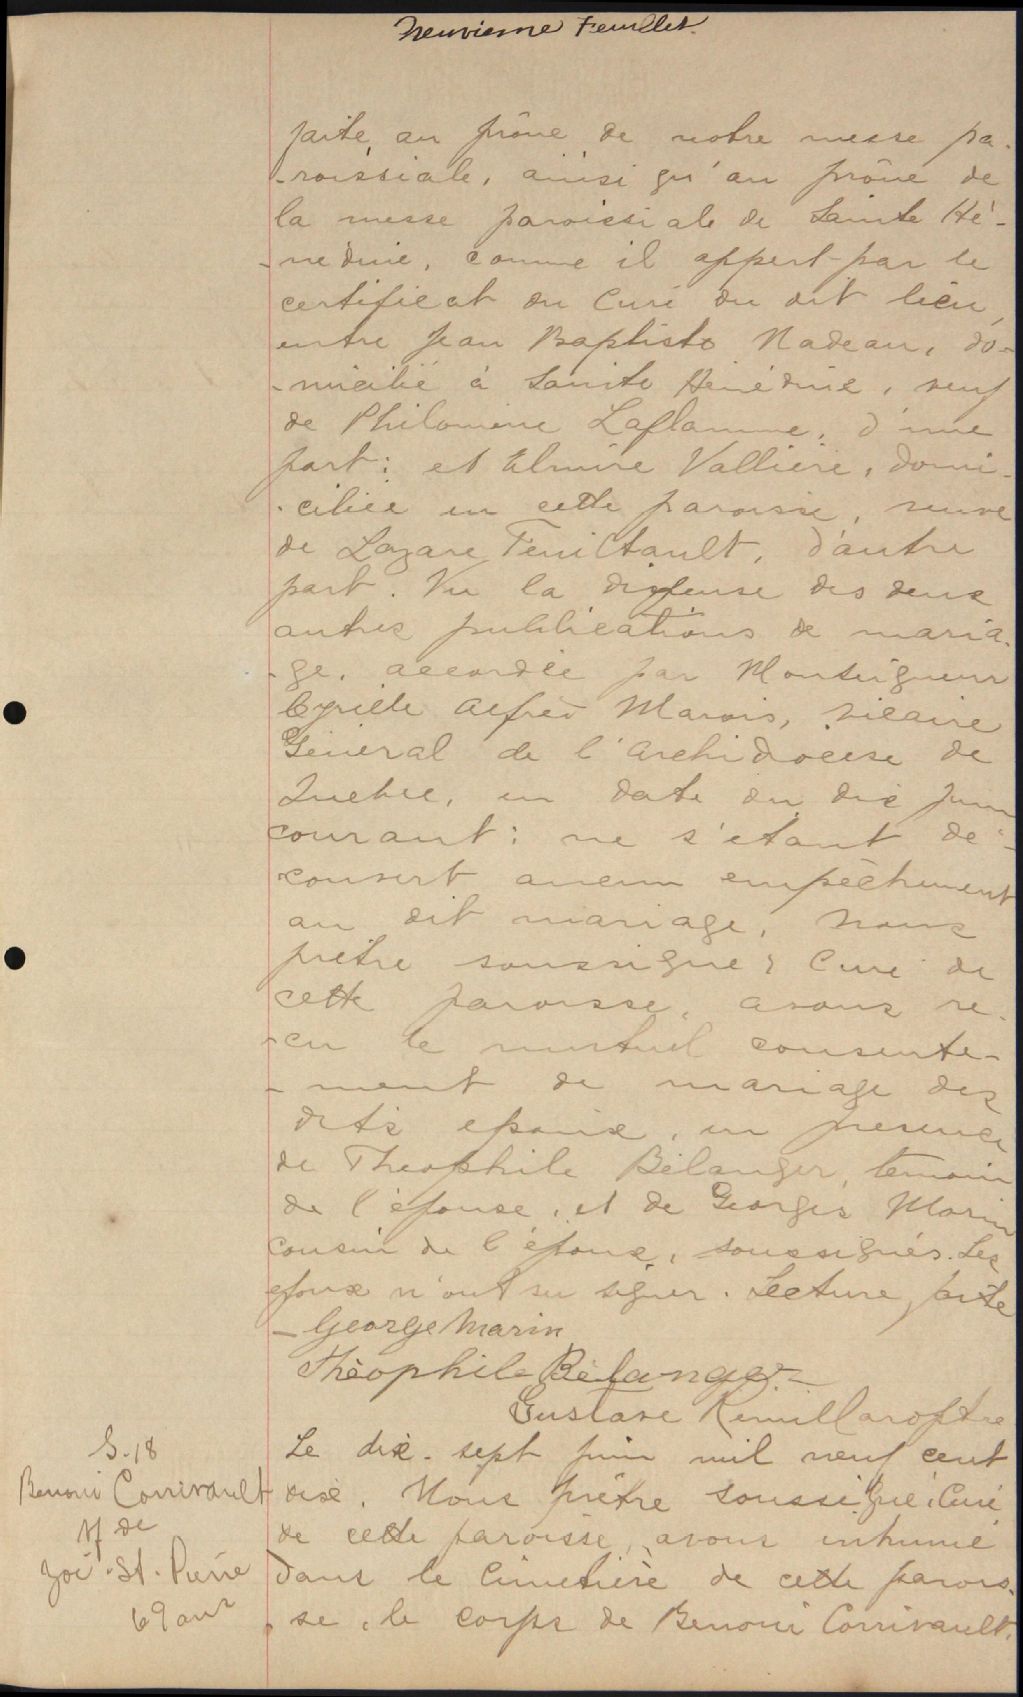 Neuvieme Feuillet.
faite, au prône de notre messe pa-
-roissiale, ainsi qu'au prône de
la messe paroissiale de Sainte Hé-
-nédine, comme il appert par le
certificat du Curé du dit lieu,
entre Jean Baptiste Nadeau, do-
-micilié à Sainte Hénédine, veuf
de Philomène Laflamme, d'une
part: et Elmire Vallière, domi-
-ciliée en cette paroisse, veuve
de Lazare Feuiltault, d'autre
part. Vu la dispense des deux
autres publications de maria-
-ge, accordée par Monseigneur
Cyrille Alfred Marois, Vicaire
Général de l'archidiocèse de
Québec, en date du dix juin
courant: ne s'étant dé-
-couvert aucun empêchement
au dit mariage, Nous
prêtre soussigné, Curé de
cette paroisse, avons re-
-çu le mutuel consente-
-ment de mariage des
dits époux, en présence
de Théophile Bélanger, témoin
de l'épouse, et de Georges Marin
cousin de l'époux, soussignés. Les
époux n'ont su signer. Lecture faite
- George Marin
Théophile Bélanger
Gustave Rémillard ptre
S-18
Benoni Corrivault
vf de
Zoé St. Pierre
69 ans
Le dix-sept juin mil neuf cent
dix, Nous prêtre soussigné, Curé
de cette paroisse, avons inhumé
dans le Cimetière de cette parois-
-se, le corps de Benoni Corrivault,